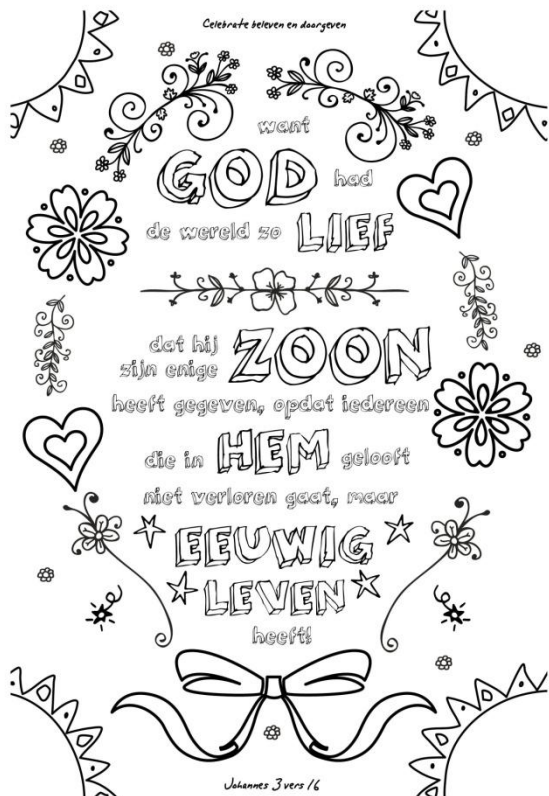 Celebrate beleven en doorgeven
want
GOD had
de wereld zo LIEF
dat hij
zijn enige ZOON
heeft gegeven, opdat iedereen
die in HEM gelooft
niet verloren gaat, maar
EEUWIG
LEVEN
heeft!
Johannes 3 vers 16